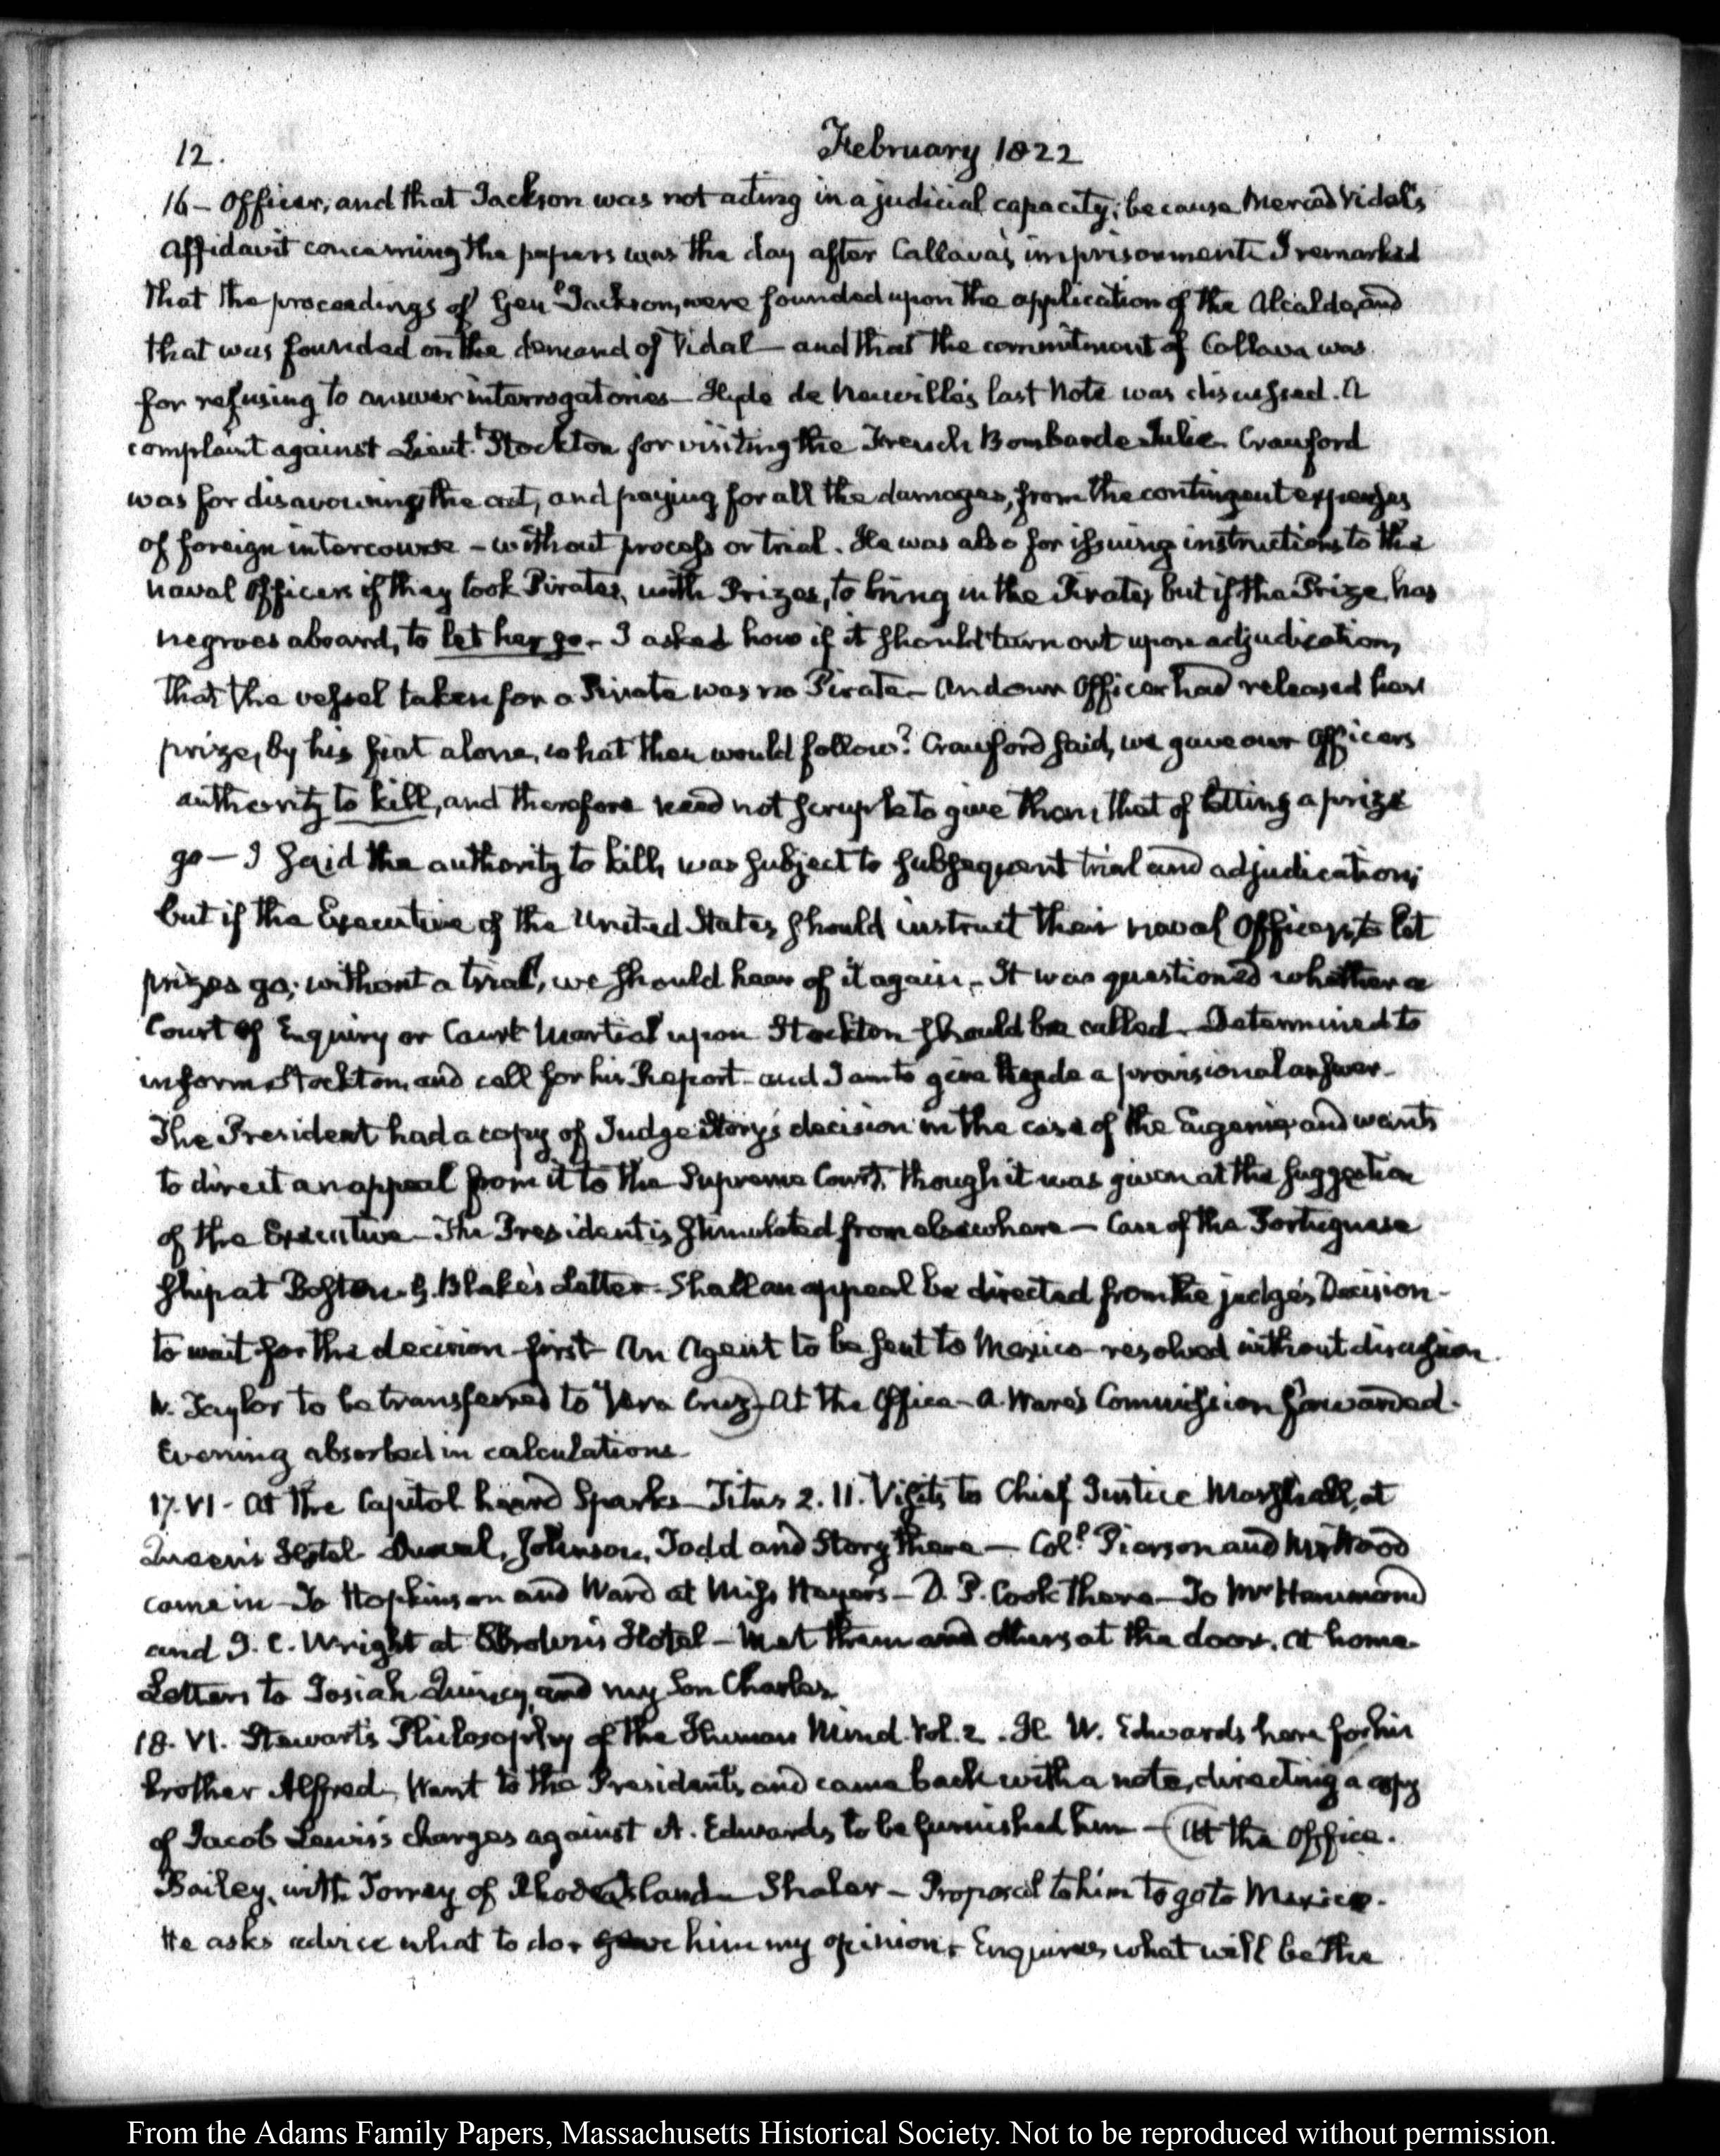 12.
February 1822
16 – Officer; and that Jackson was not acting in a judicial capacity; because Merced Vidal's
affidavit concerning the papers was the day after Callava's imprisonment. I remarked
that the proceedings of Genl. Jackson, were founded upon the application of the Alcalde, and
that was founded on the demand of Vidal – and that the commitment of Callava was
for refusing to answer interrogatories – Hyde de Neuville's last Note was discussed. A
complaint against Lieutt. Stockton for visiting the French Bombarde Julie. Crawford
was for disavowing the act, and paying for all the damages, from the contingent expenses
of foreign intercourse – without process or trial. He was also for issuing instructions to the
naval Officers if they took Pirates, with Prizes, to bring in the Pirates, but if the Prize, has
negroes aboard, to let her go – I asked how if it should turn out upon adjudication,
that the vessel taken for a Pirate was no Pirate – And our Officer had released her
prize, by his fiat alone, what then would follow? Crawford said, we gave our Officers
authority to kill, and therefore need not scruple to give them that of letting a prize
go – I said the authority to kill, was subject to subsequent trial and adjudication;
but if the Executive of the United States should instruct their naval Officers, to let
prizes go; without a trial, we should hear of it again – It was questioned whether a
Court of Enquiry or Court Martial upon Stockton should be called. Determined to
inform Stockton, and call for his Report – and I am to give Hyde a provisional answer –
The President had a copy of Judge Story's decision in the case of the Eugenie, and wants
to direct an appeal from it to the Supreme Court, though it was given at the suggestion
of the Executive – The President is stimulated from elsewhere – Case of the Portuguese
ship at Boston – G. Blake's Letter – Shall an appeal be directed from the judge's Decision –
to wait for the decision first – An Agent to be sent to Mexico – resolved without discussion.
W. Taylor to be transferred to Vera Cruz) At the Office – A. Ware's Commission forwarded.
Evening absorbed in calculations –
17. VI – At the Capitol heard Sparks – Titus 2. 11. Visits to Chief Justice Marshall, at
Queen's Hotel – Duval, Johnson, Todd and Story there – Coll. Pierson and Mr Wood
came in – To Hopkinson and Ward at Miss Heyer's – D. P. Cook there – To Mr Hammond
and J. C. Wright at Brown's Hotel – Met them and others at the door. At home –
Letters to Josiah Quincy, and my Son Charles.
18. VI. Stewart's Philosophy of the Human Mind. Vol. 2. H. W. Edwards here for his
brother Alfred, Went to the President's and came back with a note, directing a copy
of Jacob Lewis's charges against A. Edwards, to be furnished him – (At the Office.
Bailey, with Torrey of Rhode Island – Shaler – Proposal to him to go to Mexico.
He asks advice what to do – gave him my opinion – Enquires what will be the
From the Adams Family Papers, Massachusetts Historical Society. Not to be reproduced without permission.